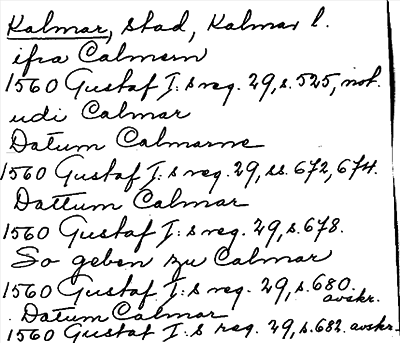 Kalmar, stad, Kalmar l.
ifra Calmarn
1560 Gustaf I:s reg. 29, s. 525, not.
udi Calmar
Datum Calmarne
1560 Gustaf I:s reg. 29, ss. 672, 674.
Dattum Calmar
1560 Gustaf I:s reg. 29, s. 678.
So geben zu Calmar
1560 Gustaf I:s reg. 29, s. 680. avskr.
Datum Calmar
1560 Gustaf I:s reg. 29, s. 682. avskr.